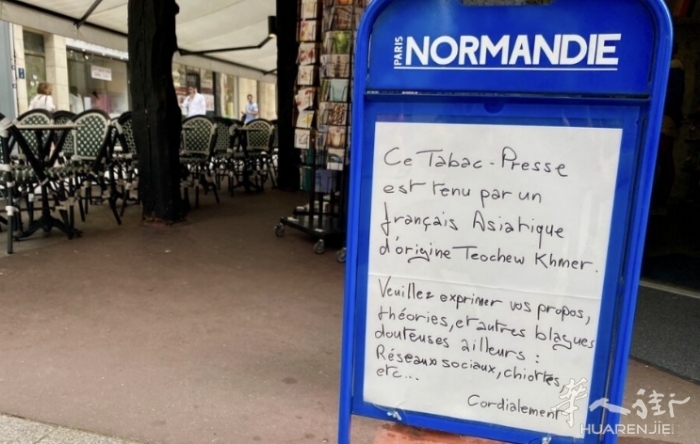 PARIS NORMANDIE
Ce Tabac-Presse
est tenu par un
français Asiatique
d'origine Teochew Khmer.
Veuillez exprimer vos propos,
théories, et autres blagues
douteuses ailleurs :
Réseaux sociaux, chiottes,
etc...
Cordialement
华人街
HUARENJIE